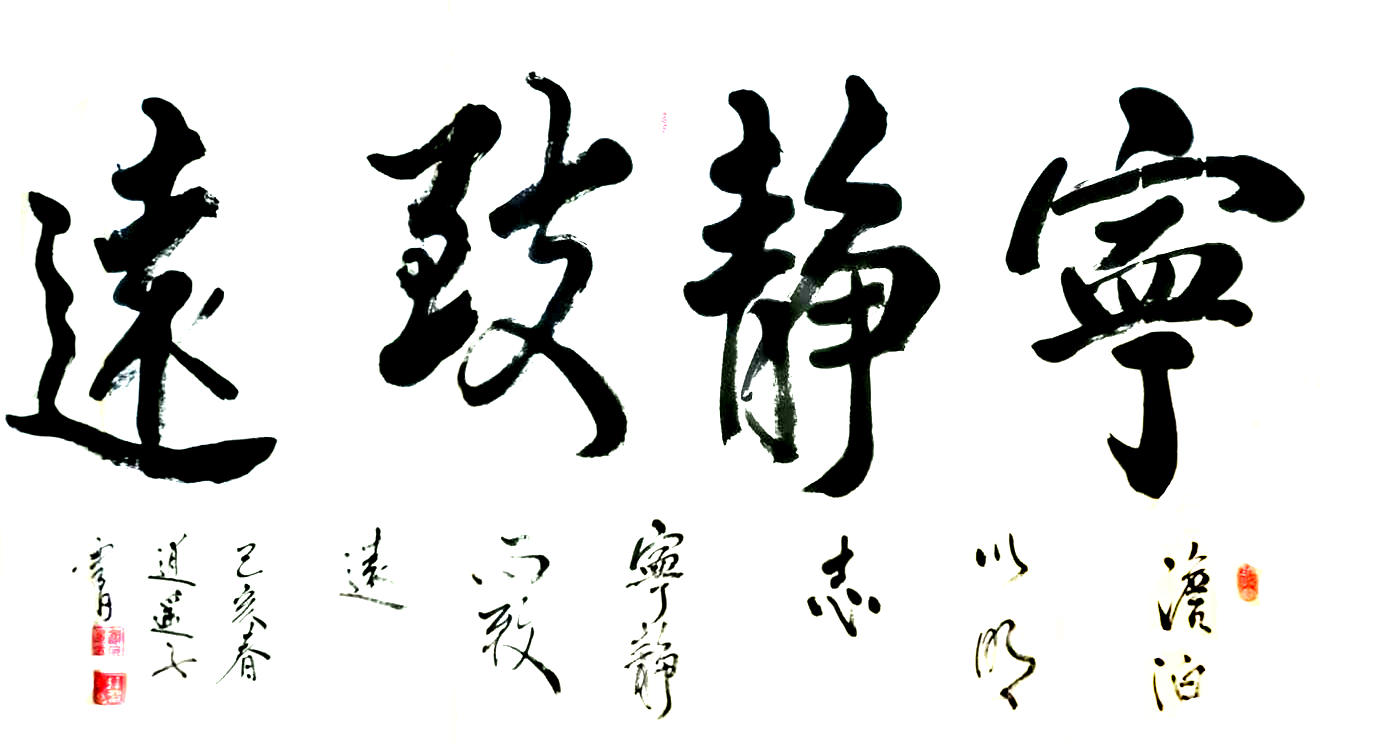 寧静致遠
澹泊
以明
志
寧静
而致
遠
己亥春
逍遥子
書